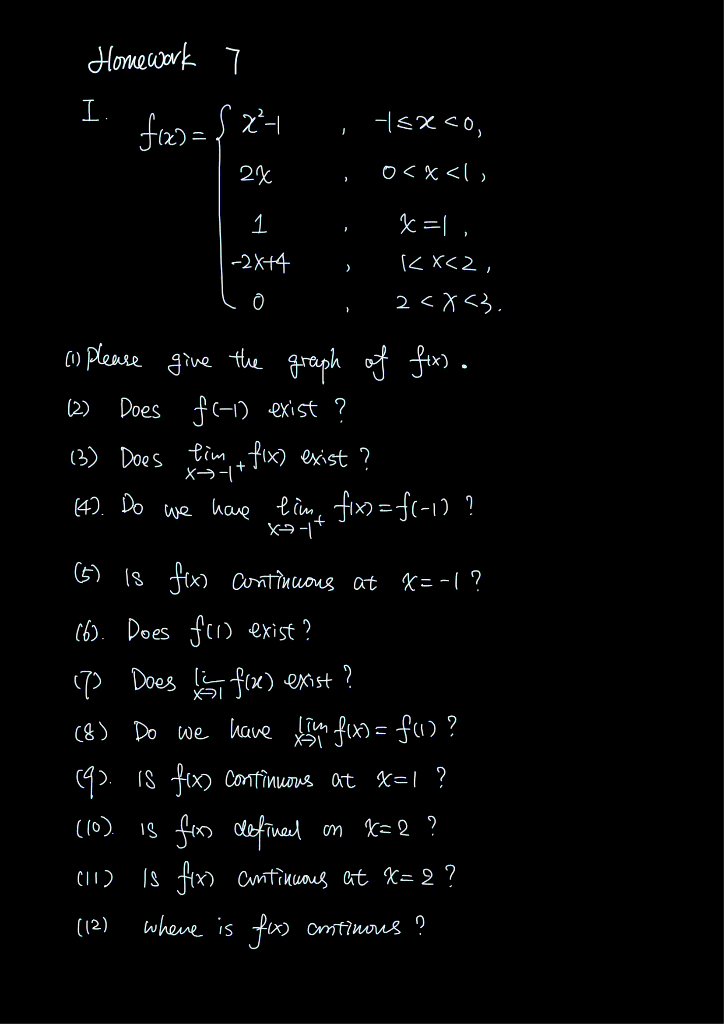 Homework 7
I. f(x) = { x²-1 , -1≤x<0,
2x , 0<x<1,
1 , x=1,
-2x+4 , 1<x<2,
0 , 2<x<3.
(1) Please give the graph of f(x).
(2) Does f(-1) exist?
(3) Does lim x→-1⁺ f(x) exist?
(4). Do we have lim x→-1⁺ f(x)=f(-1)?
(5) Is f(x) continuous at x=-1?
(6). Does f(1) exist?
(7) Does lim x→1 f(x) exist?
(8) Do we have lim x→1 f(x)=f(1)?
(9). Is f(x) continuous at x=1?
(10). is f(x) defined on x=2?
(11) Is f(x) continuous at x=2?
(12) where is f(x) continous?